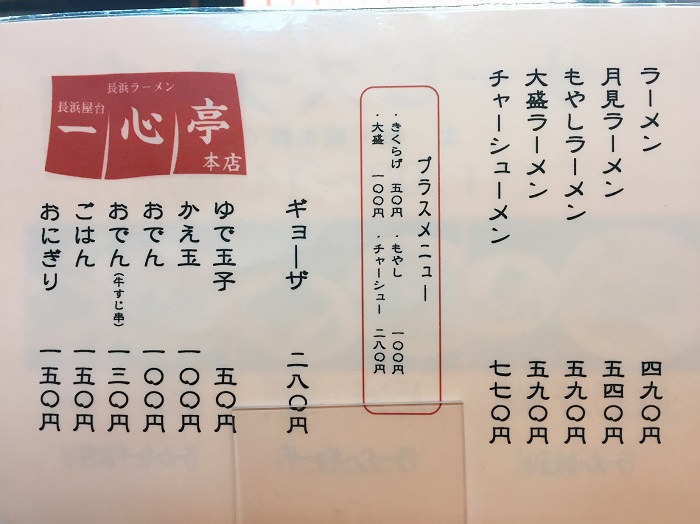 ラーメン 四九〇円
月見ラーメン 五四〇円
もやしラーメン 五九〇円
大盛ラーメン 五九〇円
チャーシューメン 七七〇円
プラスメニュー
・きくらげ 五〇円 ・もやし 一〇〇円
・大盛 一〇〇円 ・チャーシュー 二八〇円
ギョーザ 二八〇円
長浜ラーメン
長浜屋台
一心亭
本店
ゆで玉子 五〇円
かえ玉 一〇〇円
おでん 一〇〇円
おでん(牛すじ串) 一三〇円
ごはん 一五〇円
おにぎり 一五〇円